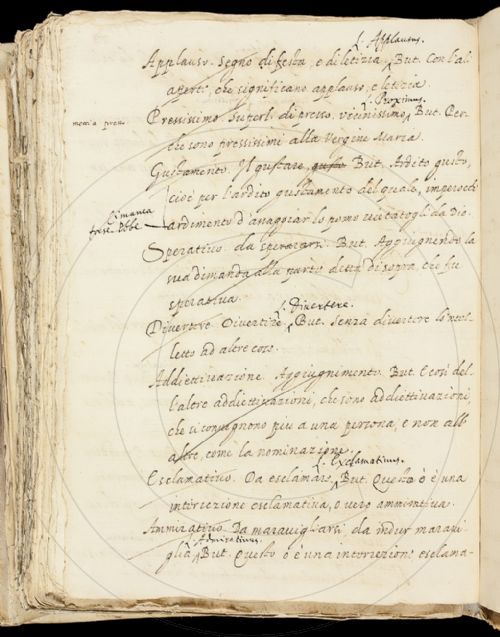 l. Applausus.
Applauso. Segno di festa, e di letizia. But. Con l'al
che significano applauso, e letizia.
l. Proximus.
metti a presso
Pressissimo. Superl. di presso. vicinissimo. But. Per
che sono pressissimi alla Vergine Maria.
Gustamento. Il gustare, gusto But. Ardito gusto,
cioè per l'ardito gustamento del quale, imperocchè
ci manca
forse ebbe
ardimento d'assaggiar lo pomo vietatogli da Dio.
Sperativo. da sperare. But. Aggiugnendo la
sua dimanda alla parte detta di sopra, che fu
sperativa.
l. Divertere.
Divertere. Divertire. But. Senza divertere lo'ntel-
letto ad altre cose.
Addiettivazione. Aggiugnimento. But. E così del-
l'altre addiettivazioni, che sono addiettivazioni,
che si convegnono più a una persona, e non all'
altre, come la nominazione.
l. Exclamativus.
Esclamativo. Da esclamare. But. Questo ò è una
interiezione esclamativa, o vero ammirativa.
Ammirativo. Da maravigliarsi, da indur maravi-
l. Admirativus.
glia. But. Questo ò è una interiezione esclama-